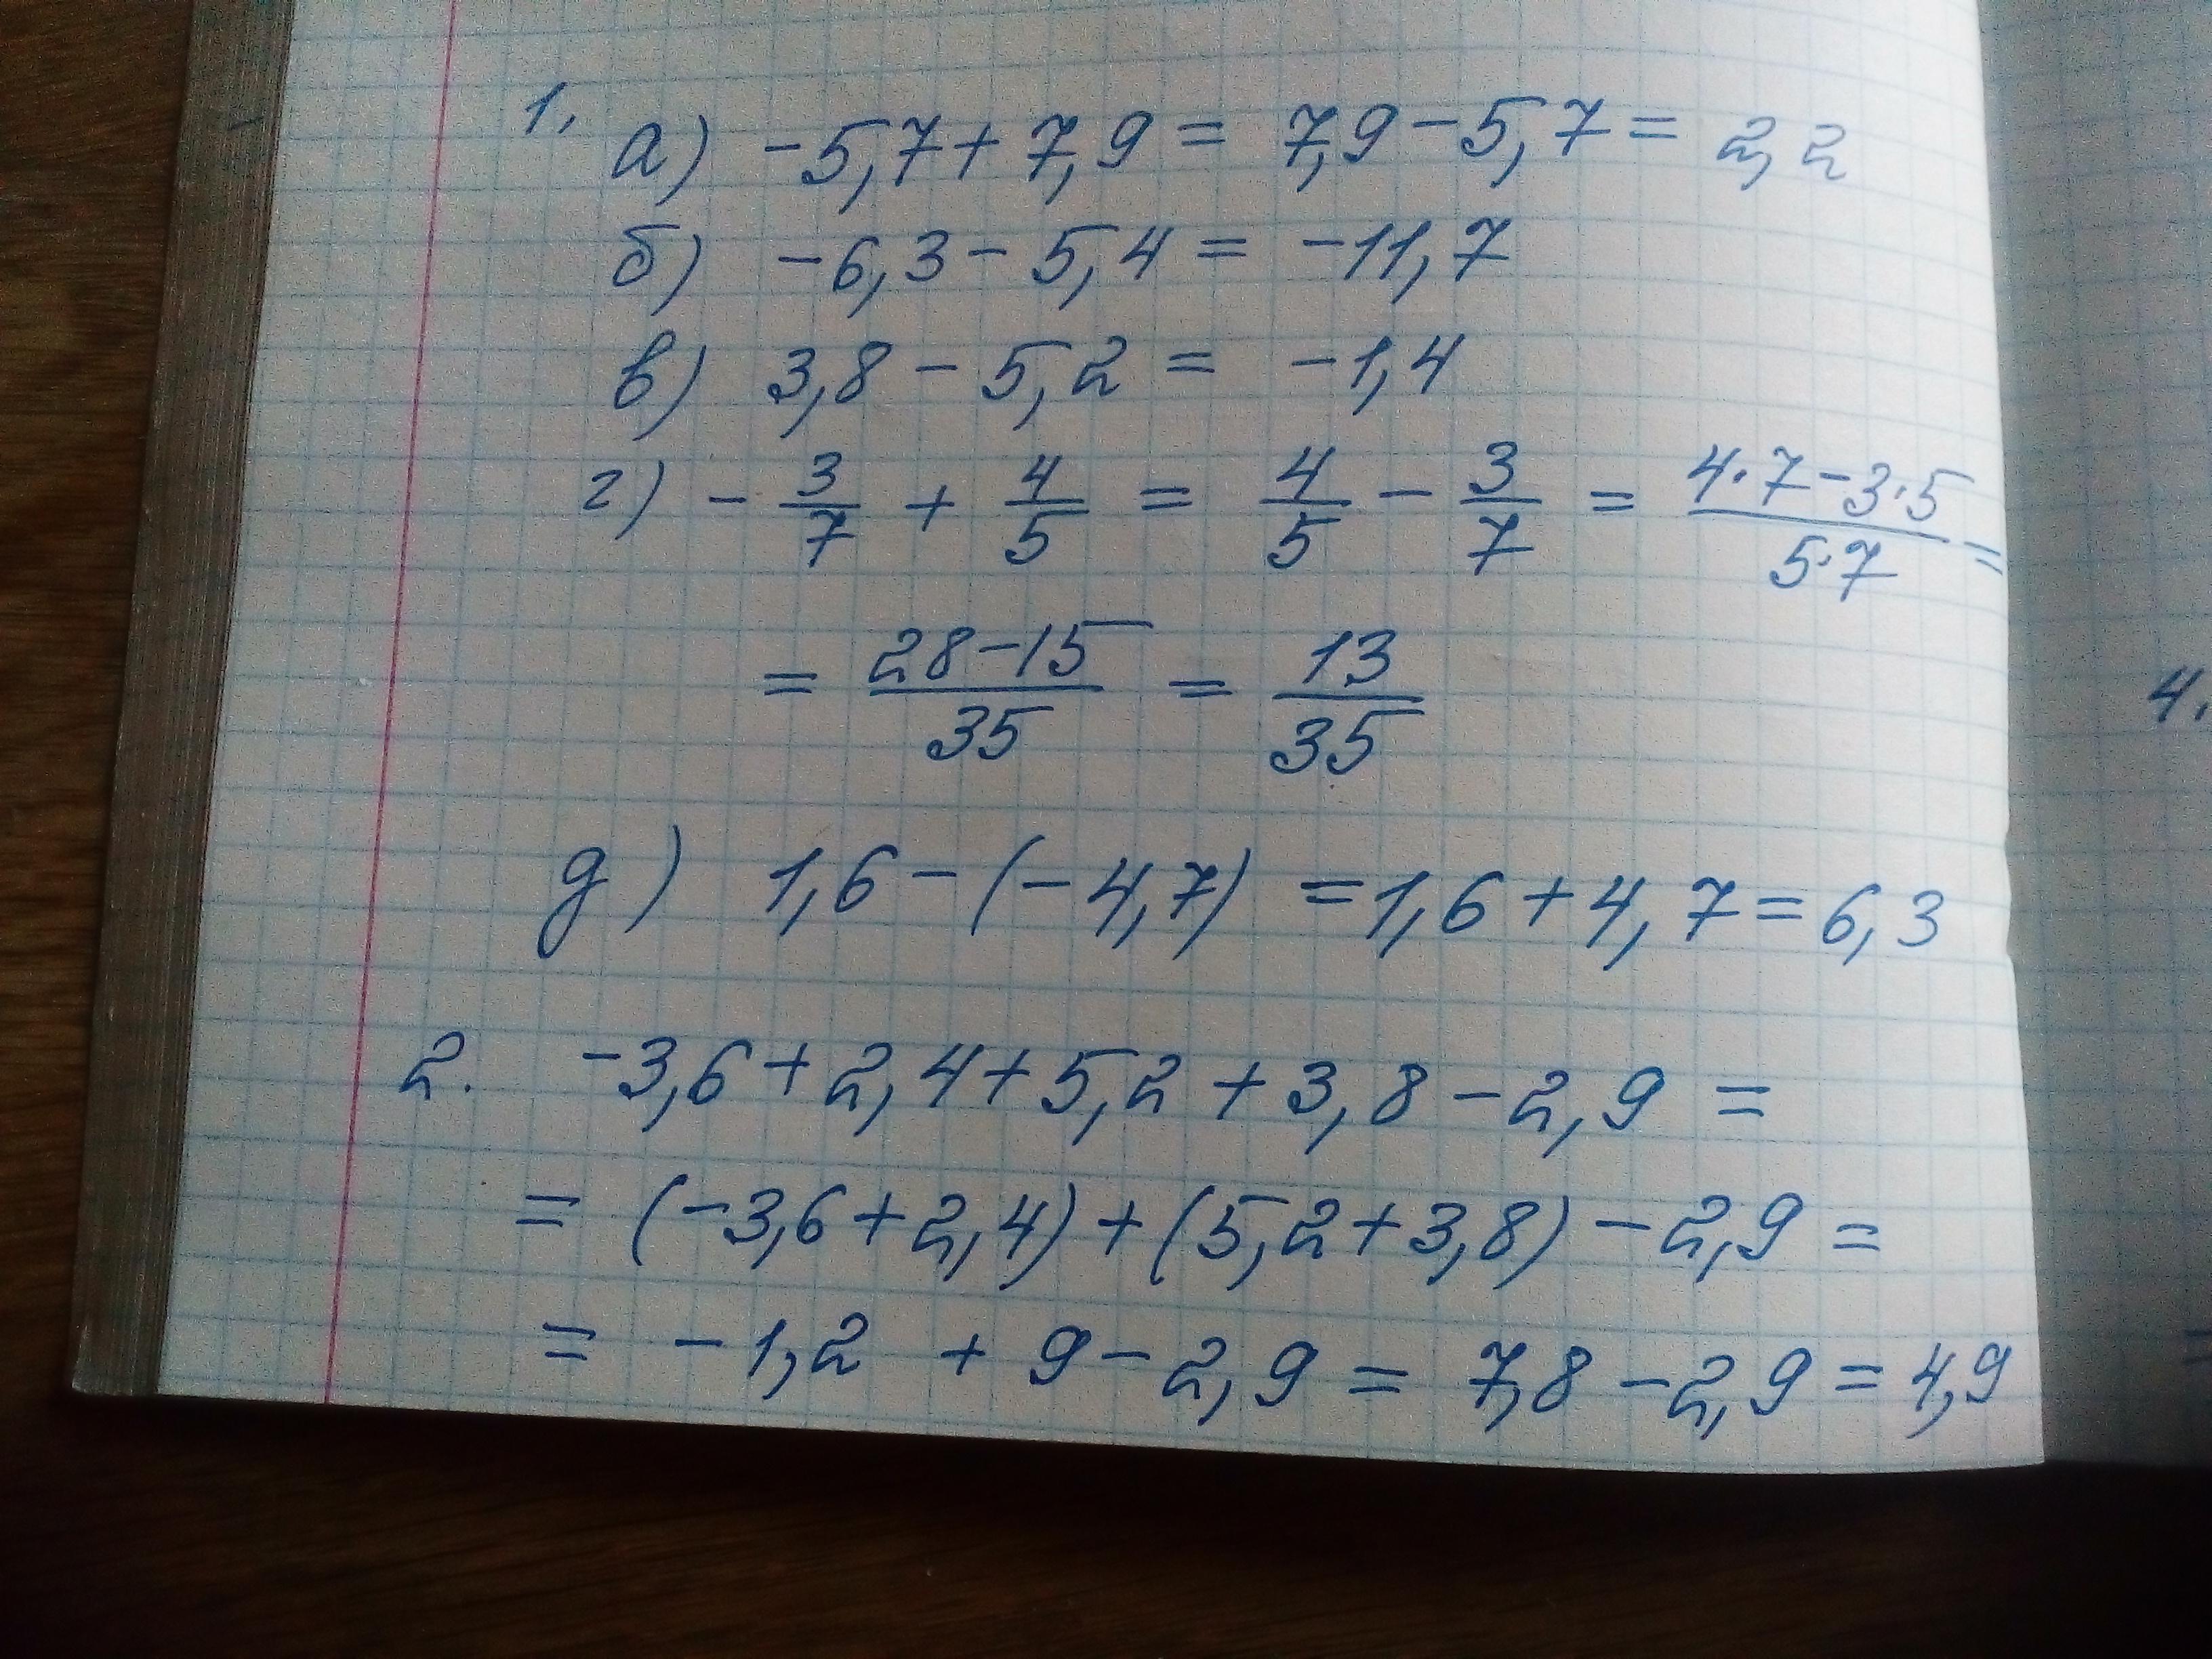 1. а) -5,7+7,9 = 7,9-5,7 = 2,2
б) -6,3-5,4 = -11,7
в) 3,8-5,2 = -1,4
г) -3/7 + 4/5 = 4/5 - 3/7 = (4·7-3·5)/(5·7) =
= (28-15)/35 = 13/35
д) 1,6-(-4,7) = 1,6+4,7 = 6,3
2. -3,6+2,4+5,2+3,8-2,9 =
= (-3,6+2,4)+(5,2+3,8)-2,9 =
= -1,2+9-2,9 = 7,8-2,9 = 4,9
4.
=